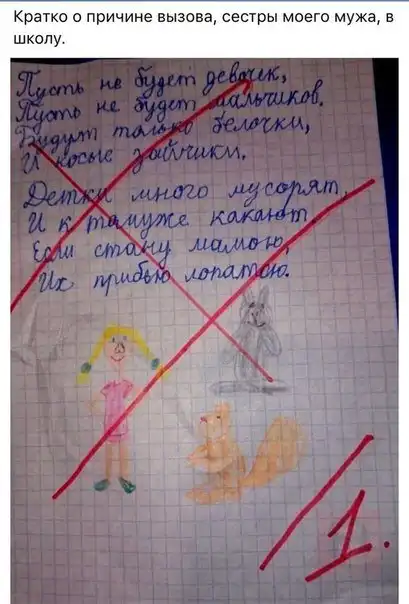 Кратко о причине вызова, сестры моего мужа, в
школу.
Пусть не будет девочек,
Пусть не будет мальчиков.
Будут только белочки,
И косые зайчики.
Детки много мусорят,
И к тамуже какают,
Если стану мамою,
Их прибью лопатою.
1.